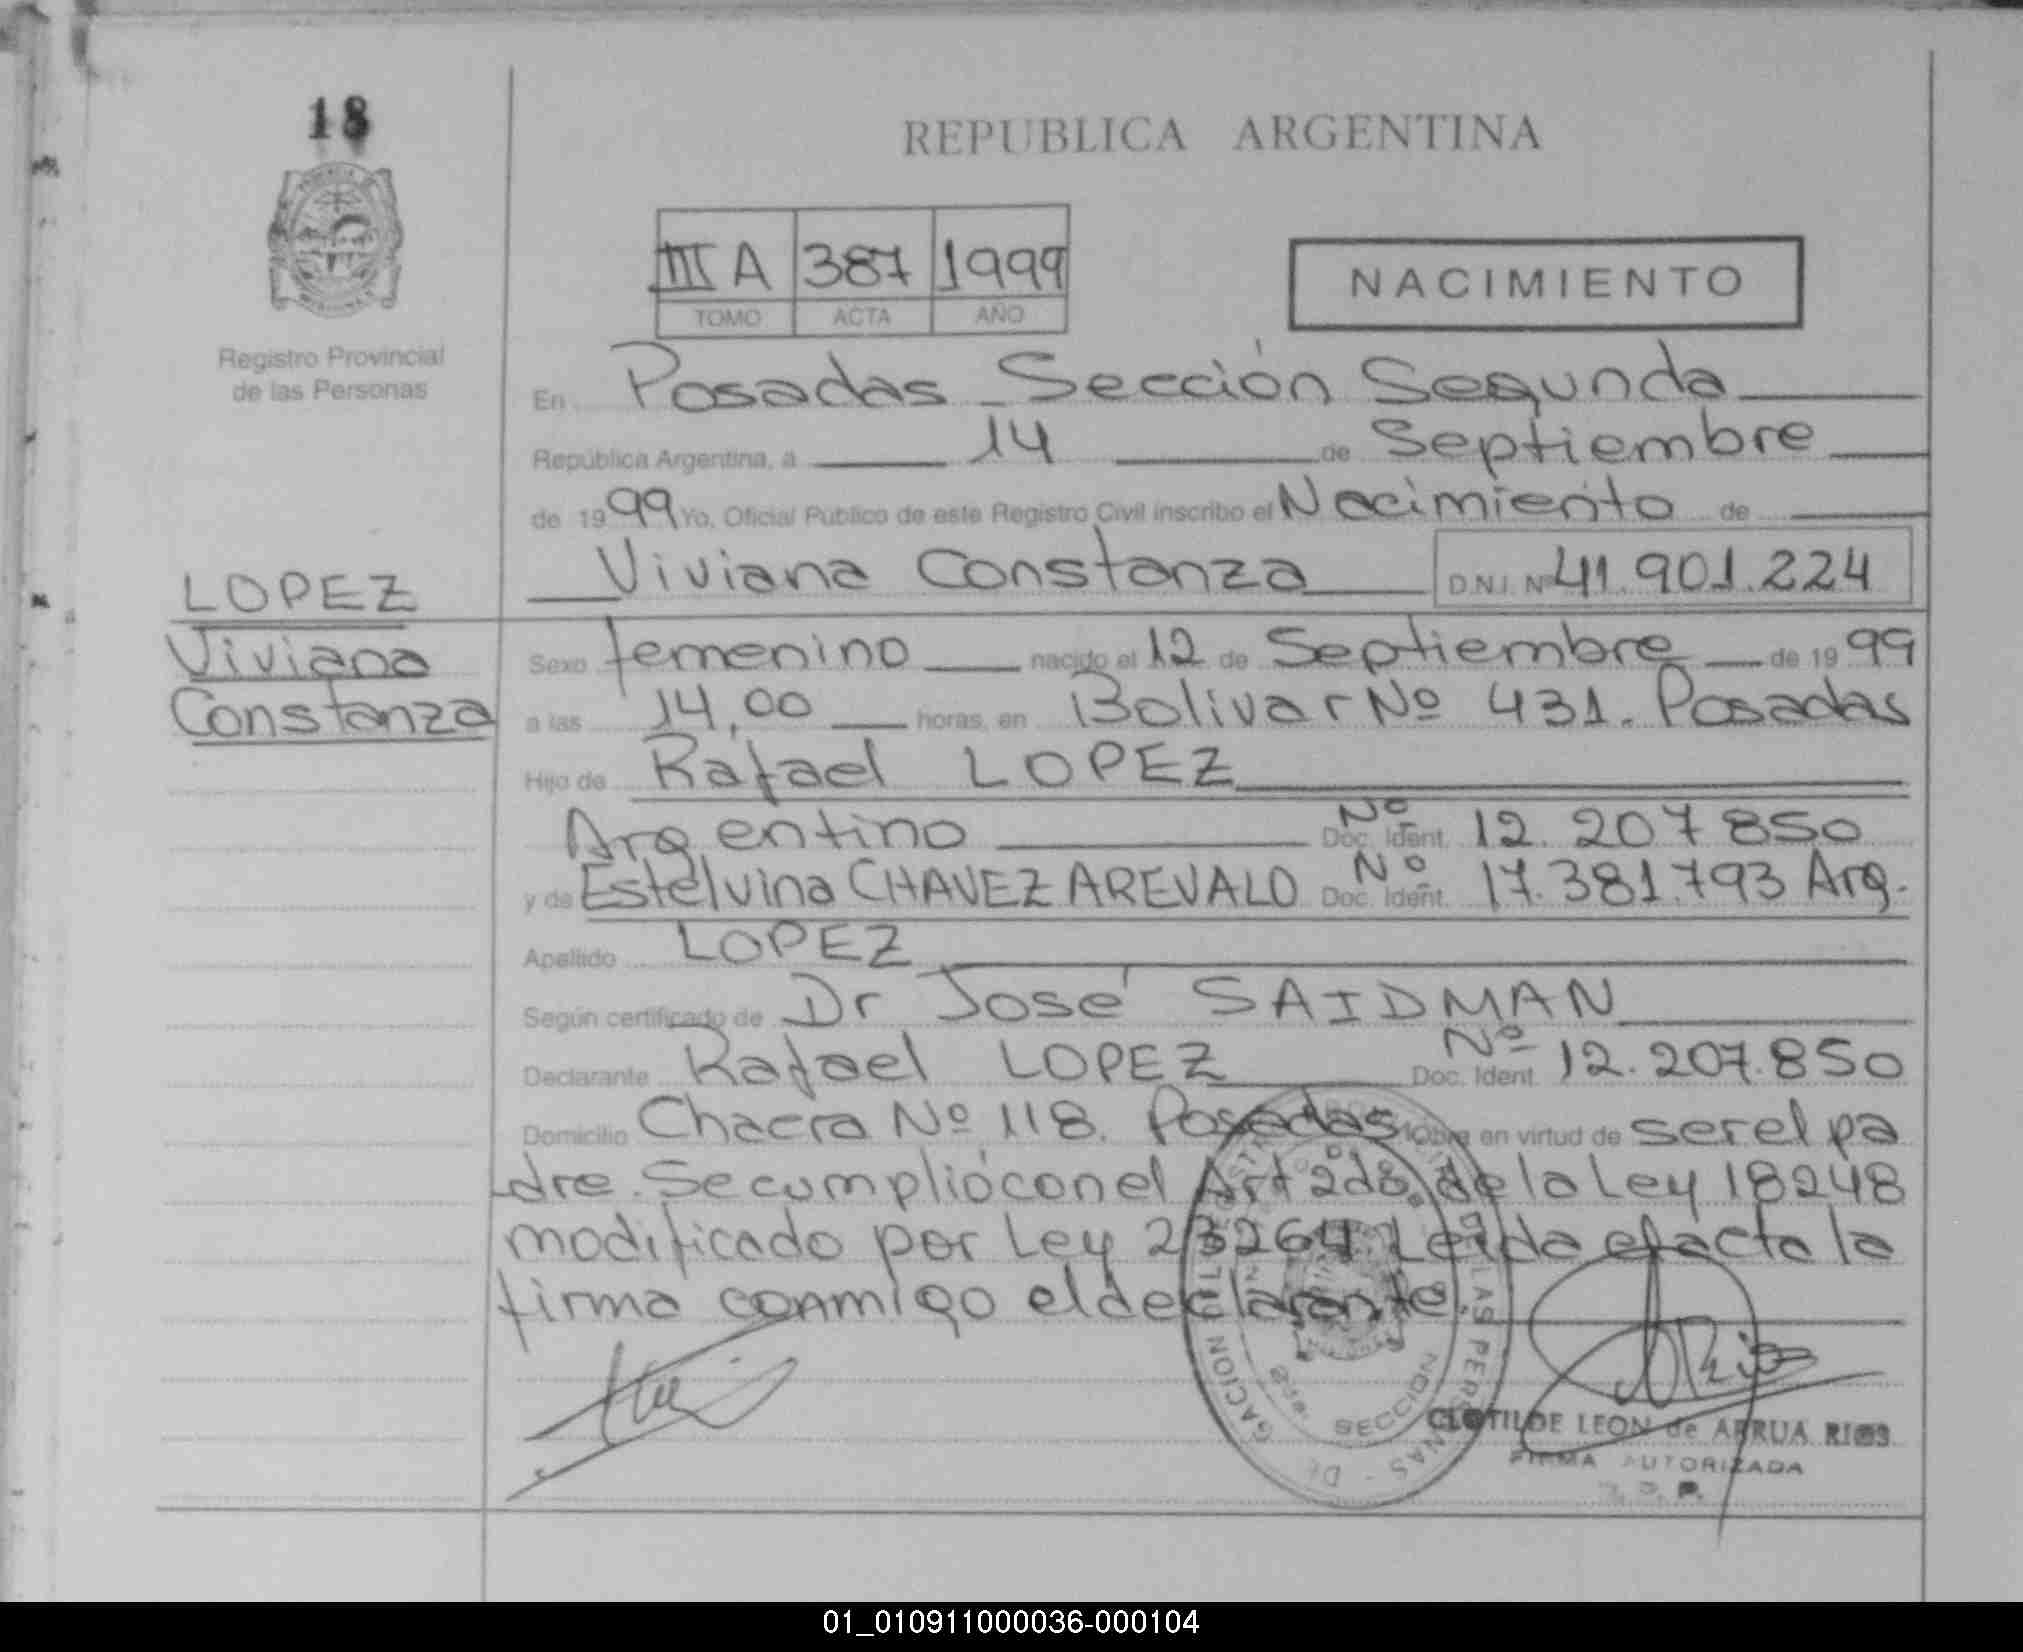 18
REPUBLICA ARGENTINA
III A 387 1999
TOMO ACTA AÑO
NACIMIENTO
Registro Provincial
de las Personas
En Posadas - Sección Segunda
República Argentina, a 14 de Septiembre
de 1999 Yo, Oficial Público de este Registro Civil inscribo el Nacimiento de
Viviana Constanza D.N.I. Nº 41.901.224
LOPEZ
Viviana
Constanza
Sexo femenino nacido el 12 de Septiembre de 1999
a las 14,00 horas, en Bolivar Nº 431. Posadas
Hijo de Rafael LOPEZ
Argentino Doc. Ident. Nº 12.207850
y de Estelvina CHAVEZ AREVALO Doc. Ident. Nº 17.381.793 Arg.
Apellido LOPEZ
Según certificado de Dr José SAIDMAN
Declarante Rafael LOPEZ Doc. Ident. Nº 12.207.850
Domicilio Chacra Nº 118. Posadas Obra en virtud de ser el pa
dre. Se cumplió con el Art 2do. de la Ley 18248
modificado por Ley 23264. Leída el acta la
firma conmigo el declarante.
SECCION
CLOTILDE LEON de ARRUA RIOS
FIRMA AUTORIZADA
01_010911000036-000104